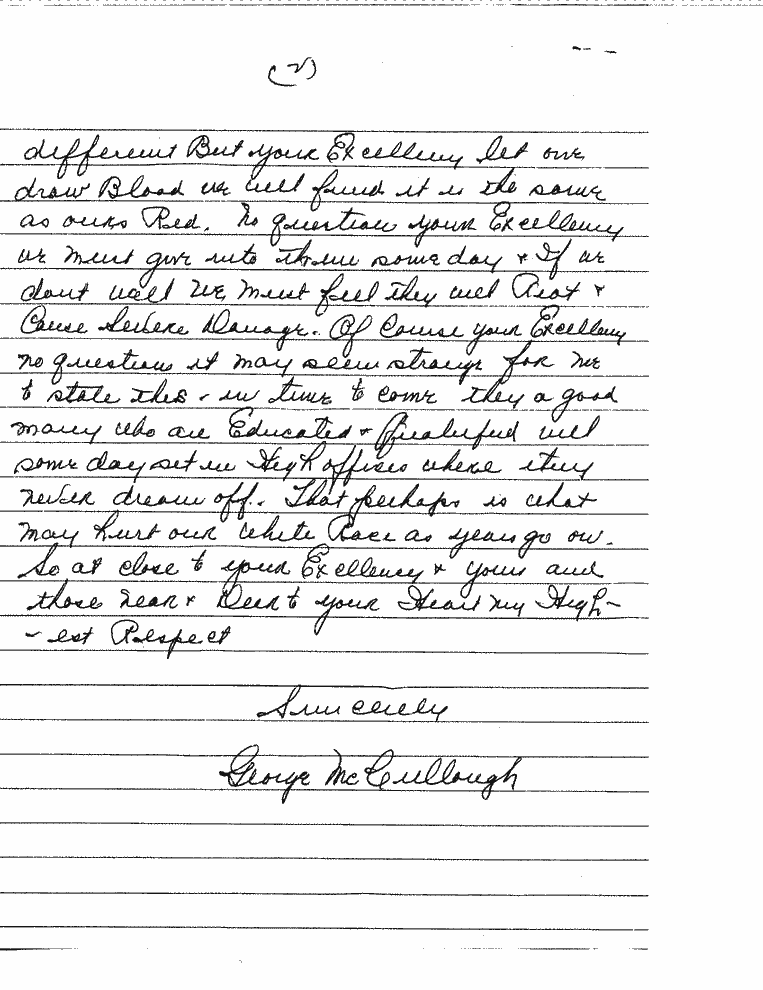 (2)
different But your Excellency let one
draw Blood we will find it is the same
as ours Red. No question your Excellency
we must give into them some day & If we
dont well we must feel they will Riot &
Cause Severe Damage. Of Course your Excellency
no question it may seem strange for me
to state this - in time to come they a good
many who are Educated & will
some day set in High offices where they
never dream off. That perhaps is what
may hurt our White Race as years go on.
So at close to your Excellency & yours and
those near & Dear to your Heart my High-
- est Respect
Sincerely
George McCullough